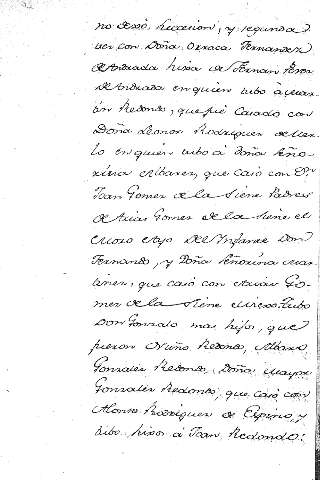 no dexó sucesion, y segunda
vez con Doña Urraca Fernandez
de Andrada hixa de Fernan Perez
de Andrada en quien tubo à Mar-
tin Redondo, que fué Casado con
Doña Leonor Rodriguez de
lo en quien tubo à Doña Seño-
rina Albarez, que casó con Dn
Joan Gomez de la Siene Padres
de Arias Gomez de la Siene el
Mozo Ayo del Infante Don
Fernando, y Doña Señorina Mar-
tinez, que casó con Arias Go-
mez de la Siene el viexo. Tubo
Don Gonzalo mas hijos, que
fueron Nuño Redondo, Albaro
Gonzalez Redondo, Doña Mayor
Gonzalez Redondo, que casó con
Alonso Rodriguez de Espino, y
tubo hixos à Joan Redondo: